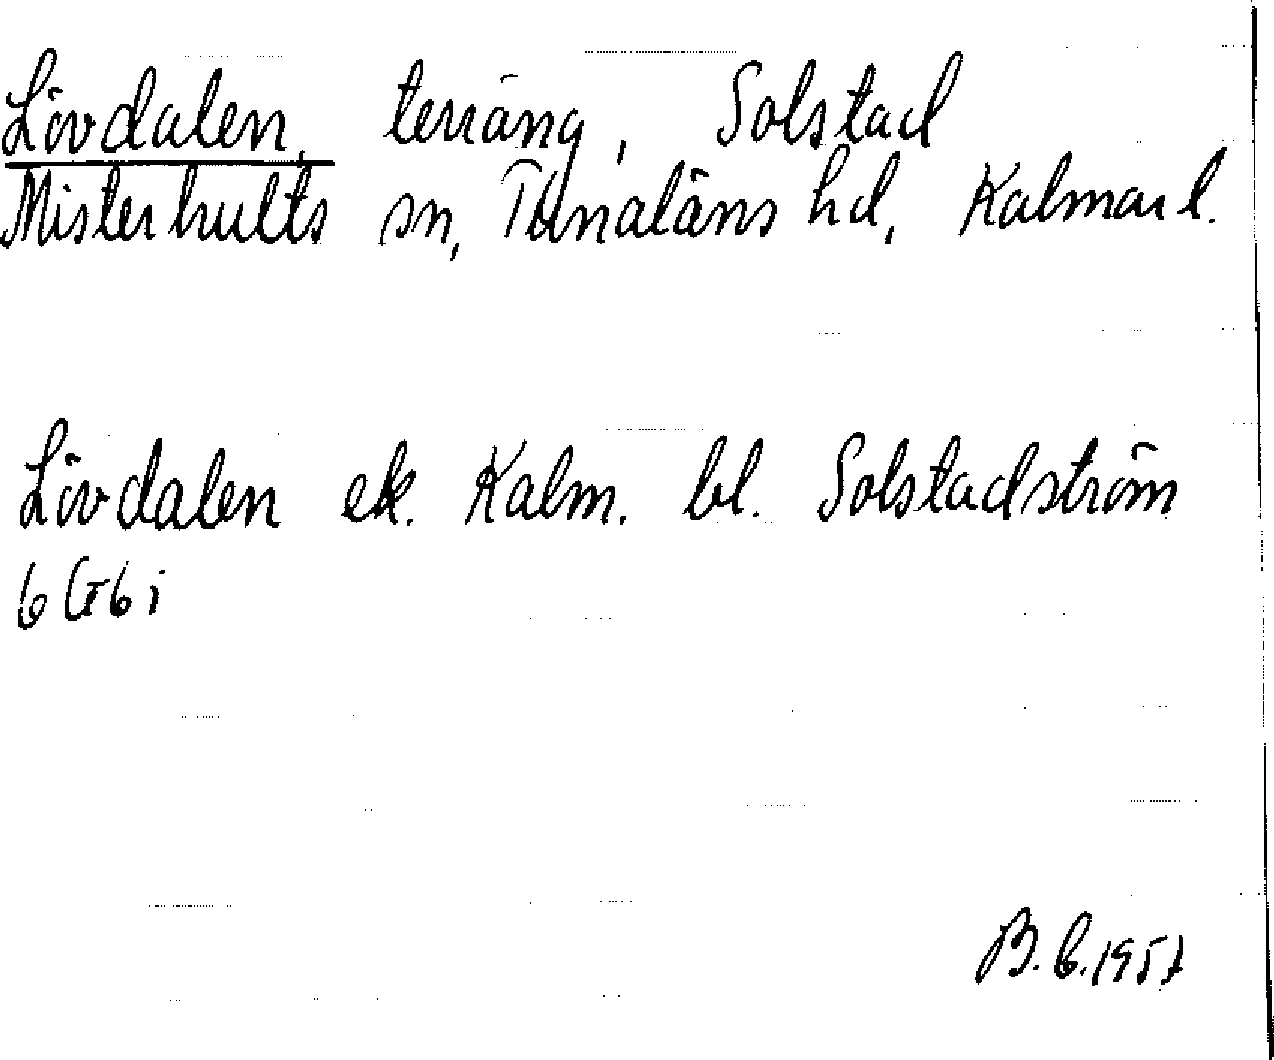 Lövdalen, terräng, Solstad
Misterhults sn, Tunaläns hd, Kalmar l.
Lövdalen ek. Kalm. bl. Solstadström
6 G6i
B.C. 1957